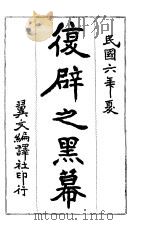 民國六年夏
復辟之黑幕
翼文編譯社印行
www.toutu.info